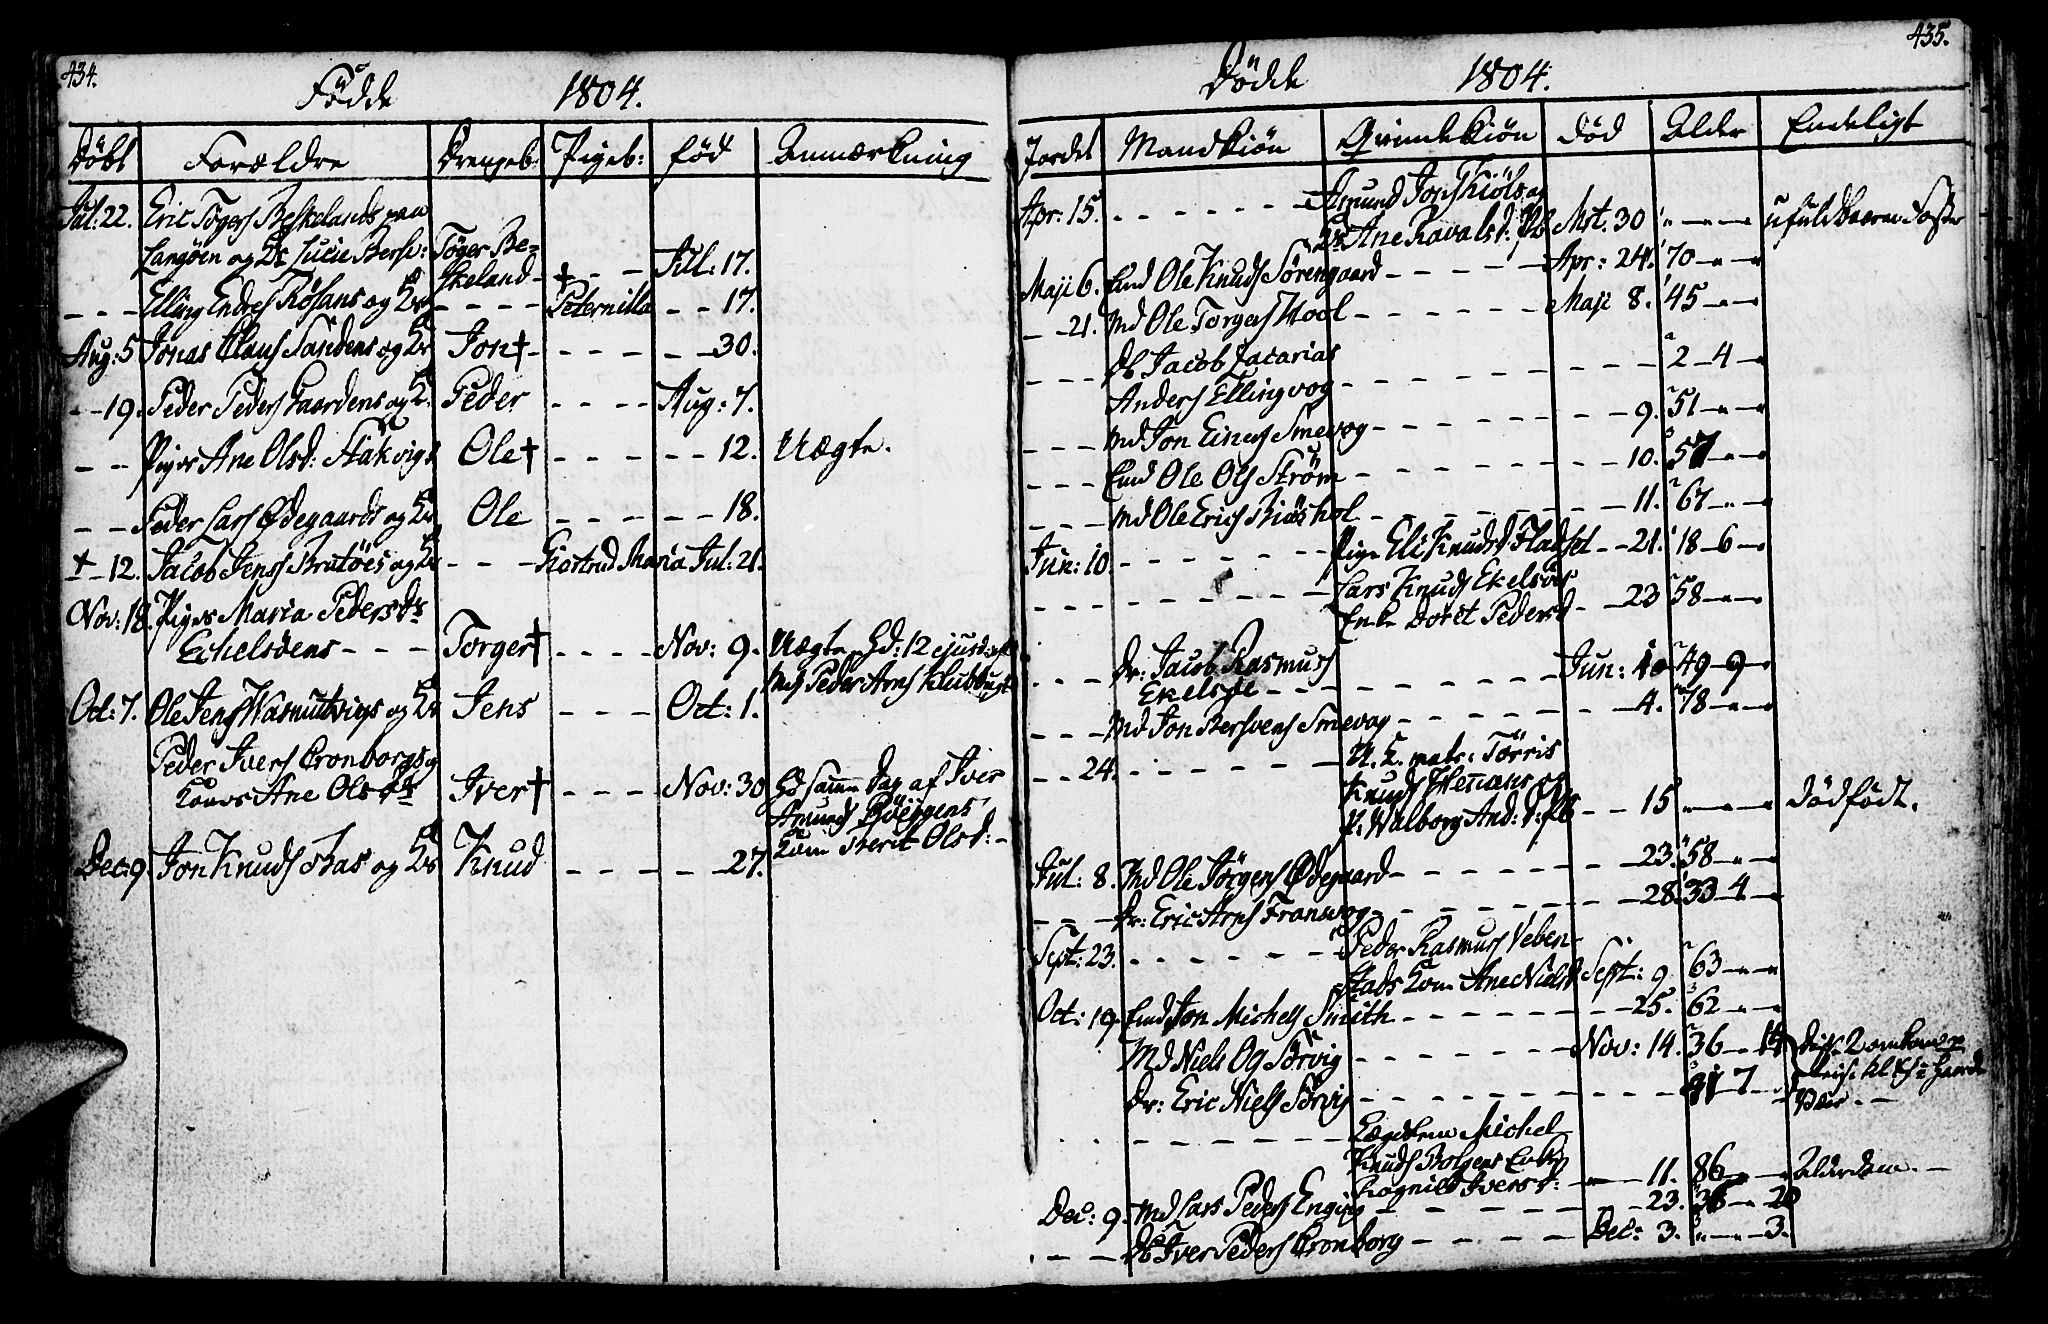 434.
Fødde 1804.
Døbt Forældre Drengeb: Pigeb: fød Anmærkning
Jul: 22. Eric Tøgers Beskelands paa
Langøen og Kv Lucie Bersv: Tøger Be-
skeland - † - - Jul: 17.
- - - Elling Endres Røsans og Kv - - - - Peternilla - - 17.
Aug: 5 Jonas Claus Sandens og Kv Jon † - - - - - - 30.
- - 19. Peder Peders Gaardens og K. Peder - - - - Aug: 7.
- - Piges Ane Olsd: Stakvigs Ole † - - - - - - 12. Uægte.
- - Peder Lars Ødegaards og Kv Ole - - - - - - 18.
† - 12. Jacob Jens Brutøes og Kv - - - Giertrud Maria Jul: 21.
Nov: 18. Piges Maria Pedersdr
Echelsøens - - - Torger † - - - - Nov: 9. Uægte, Hd: 12 ejusd af
Md Peder Arns Klubbugt
Oct: 7. Ole Jens Wasmutvigs og Kv Jens - - - Oct: 1.
Peder Ivers Cronborgs og
Kones Ane Olsdrs Iver † - - - - Nov: 30 Hd samme Dag af Iver
Amunds Bøiggens
Kone Berit Olsd: -
Dec: 9. Jon Knuds Aas og Kv Knud - - - - - - 27.
435.
Dødde 1804.
Jordet Mandkiøn Qvindekiøn død Alder Endeligt
Apr: 15. - - - - - - - Amund Jons Kiøls og
Kv Ane Ravalsd: Pb Mrt. 30 - - - ufuldbaaren Foster
Maji 6. Emd Ole Knuds Sørengaard - - - - - Apr: 24. 70 - -
- - 21. Md Ole Torgers Hool - - - - - - Maji 8. 45 - -
- - - Db Jacob Zacarias
Anders Ellingvog - - - - - - - - - 2 - 4 -
- - - Md Jon Einers Smevog - - - - - - - 9. 51 - -
- - - Emd Ole Ols Strøm - - - - - - - 10. 57 - -
- - - Md Ole Erics Biøshol - - - - - - - 11. 67 - -
Jun: 10. - - - - - - Pige Eli Knudsd Fladset - - 21. 18 - 6 -
- - - - - - - - - Lars Knuds Ekelsøes
Enke Doret Pedersd - - 23 58 - -
- - - Dr: Jacob Rasmus
Ekelsøe - - - - - - - - Jun: 10 49 - 9 -
- - - Md Jon Bersvens Smevog - - - - - - 4. 78 - -
- - 24. - - - - - - U. K. mats: Tørris
Knuds Hemans og
P: Walborg And: d: Pb - - 15 - - - dødfødt.
Jul: 8. Md Ole Jørgens Ødegaard - - - - - - 23. 58 - -
- - - Dr: Eric Arns Fransvog - - - - - - 28. 33 - 4 -
Sept: 23. - - - - - - Peder Rasmus Veben-
stads Kone Ane Nielsd Sept: 9 63 - -
Oct: 19. Emd Jon Michels Smith - - - - - - - 25. 62 - -
Md Niels Ols Sørvig - - - - - - Nov: 14. 36 - 14
Dr: Eric Niels Sørvig - - - - - - - 7 -
- - - - - - - - - Lægdslem Michel
Knuds Bolgens Enke
Ragnild Iversd: - - 11. 86 - - Alderdom. -
Dec: 9. Md Lars Peders Engvig - - - - - - 23. 36 - 20
- - - Db Iver Peders Cronborg - - - - Dec: 3. - - 3.